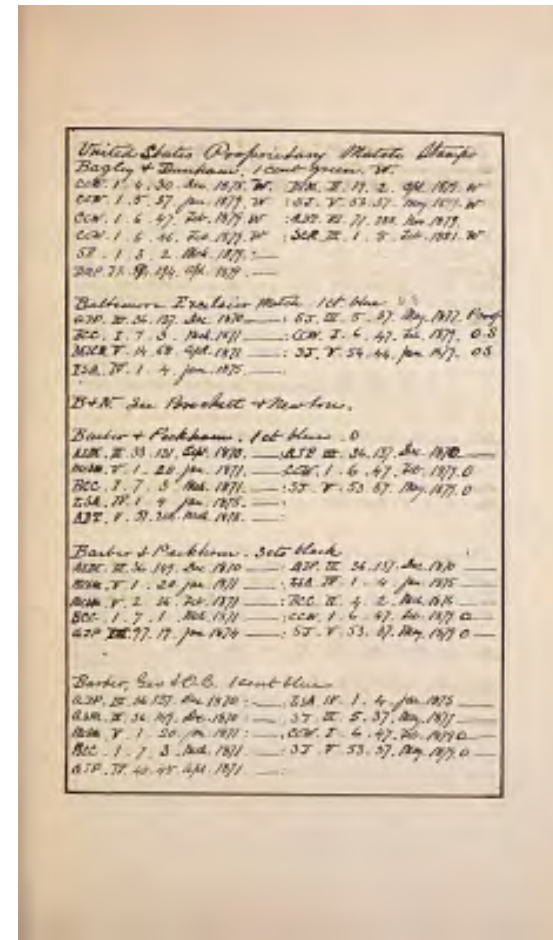 United States Proprietary Match Stamps
Bagley & Dunham. 1 cent green. W.
CCW. 1. 4. 30. Dec. 1878. W. 2. Apl. 1879. W
CCW. 1. 5. 37. Jan. 1879. W : SJ. V. 53. 37. May. 1879. W
CCW. 1. 6. 47. Feb. 1879. W Nov. 1879.
CCW. 1. 6. 46. Feb. 1879. W 1. 5. Feb. 1881. W
1. 3. 2. Mch. 1879. :
194. Apl. 1879.
Baltimore Excelsior Match 1ct blue
AJP. III. 36. 137. Dec 1870 : SJ. II. 5. 37. May. 1877. Proof
BCC. 1. 7. 3. Mch. 1871 : CCW. I. 6. 47. Feb. 1879. O.S
V. 14. 68. Apl. 1871 : SJ. V. 54. 44. OS
ISA. IV. 1. 4. Jan. 1875.
B+N. See Brockett + Newton.
Barber & Peckham. 1 ct blue. O
33. 131. Sept. 1870. : AJP. III. 36. 137. Dec. 1870
V. 1. 20 Jan. 1871. : CCW. 1. 6. 47. Feb. 1879. O
BCC. 1. 7. 3 Mch. 1871. : SJ. V. 53. 37. May. 1879. O
ISA. IV. 1. 4 Jan. 1875.
V. Mch. 1876.
Barber & Peckham. 3cts black
36. 149. Dec. 1870 : AJP. III. 36. 137. Dec. 1870
V. 1. 20. Jan. 1871 : ISA. IV. 1. 4. Jan. 1875
V. 2. 26. Feb. 1871 : BCC. II. 4. 2. Mch. 1876
BCC. 1. 7. 1. Mch. 1871 : CCW. 1. 6. 47. Feb. 1879 O
AJP. 97. 17. Jan. 1874 : SJ. V. 53. 37. May. 1879 O
Barber, Geo & O.C. 1 cent blue
AJP. III. 36. 137. Dec. 1870 : ISA. IV. 1. 4. Jan. 1875
36. 149. Dec. 1870 : SJ. II. 5. 37. May. 1877
V. 1. 20. Jan. 1871 : CCW. I. 6. 47. Feb. 1879 O
BCC. 1. 7. 3. Mch. 1871. : SJ. V. 53. 37. May. 1879. O
AJP. IV. 40. 45. Apl. 1871.